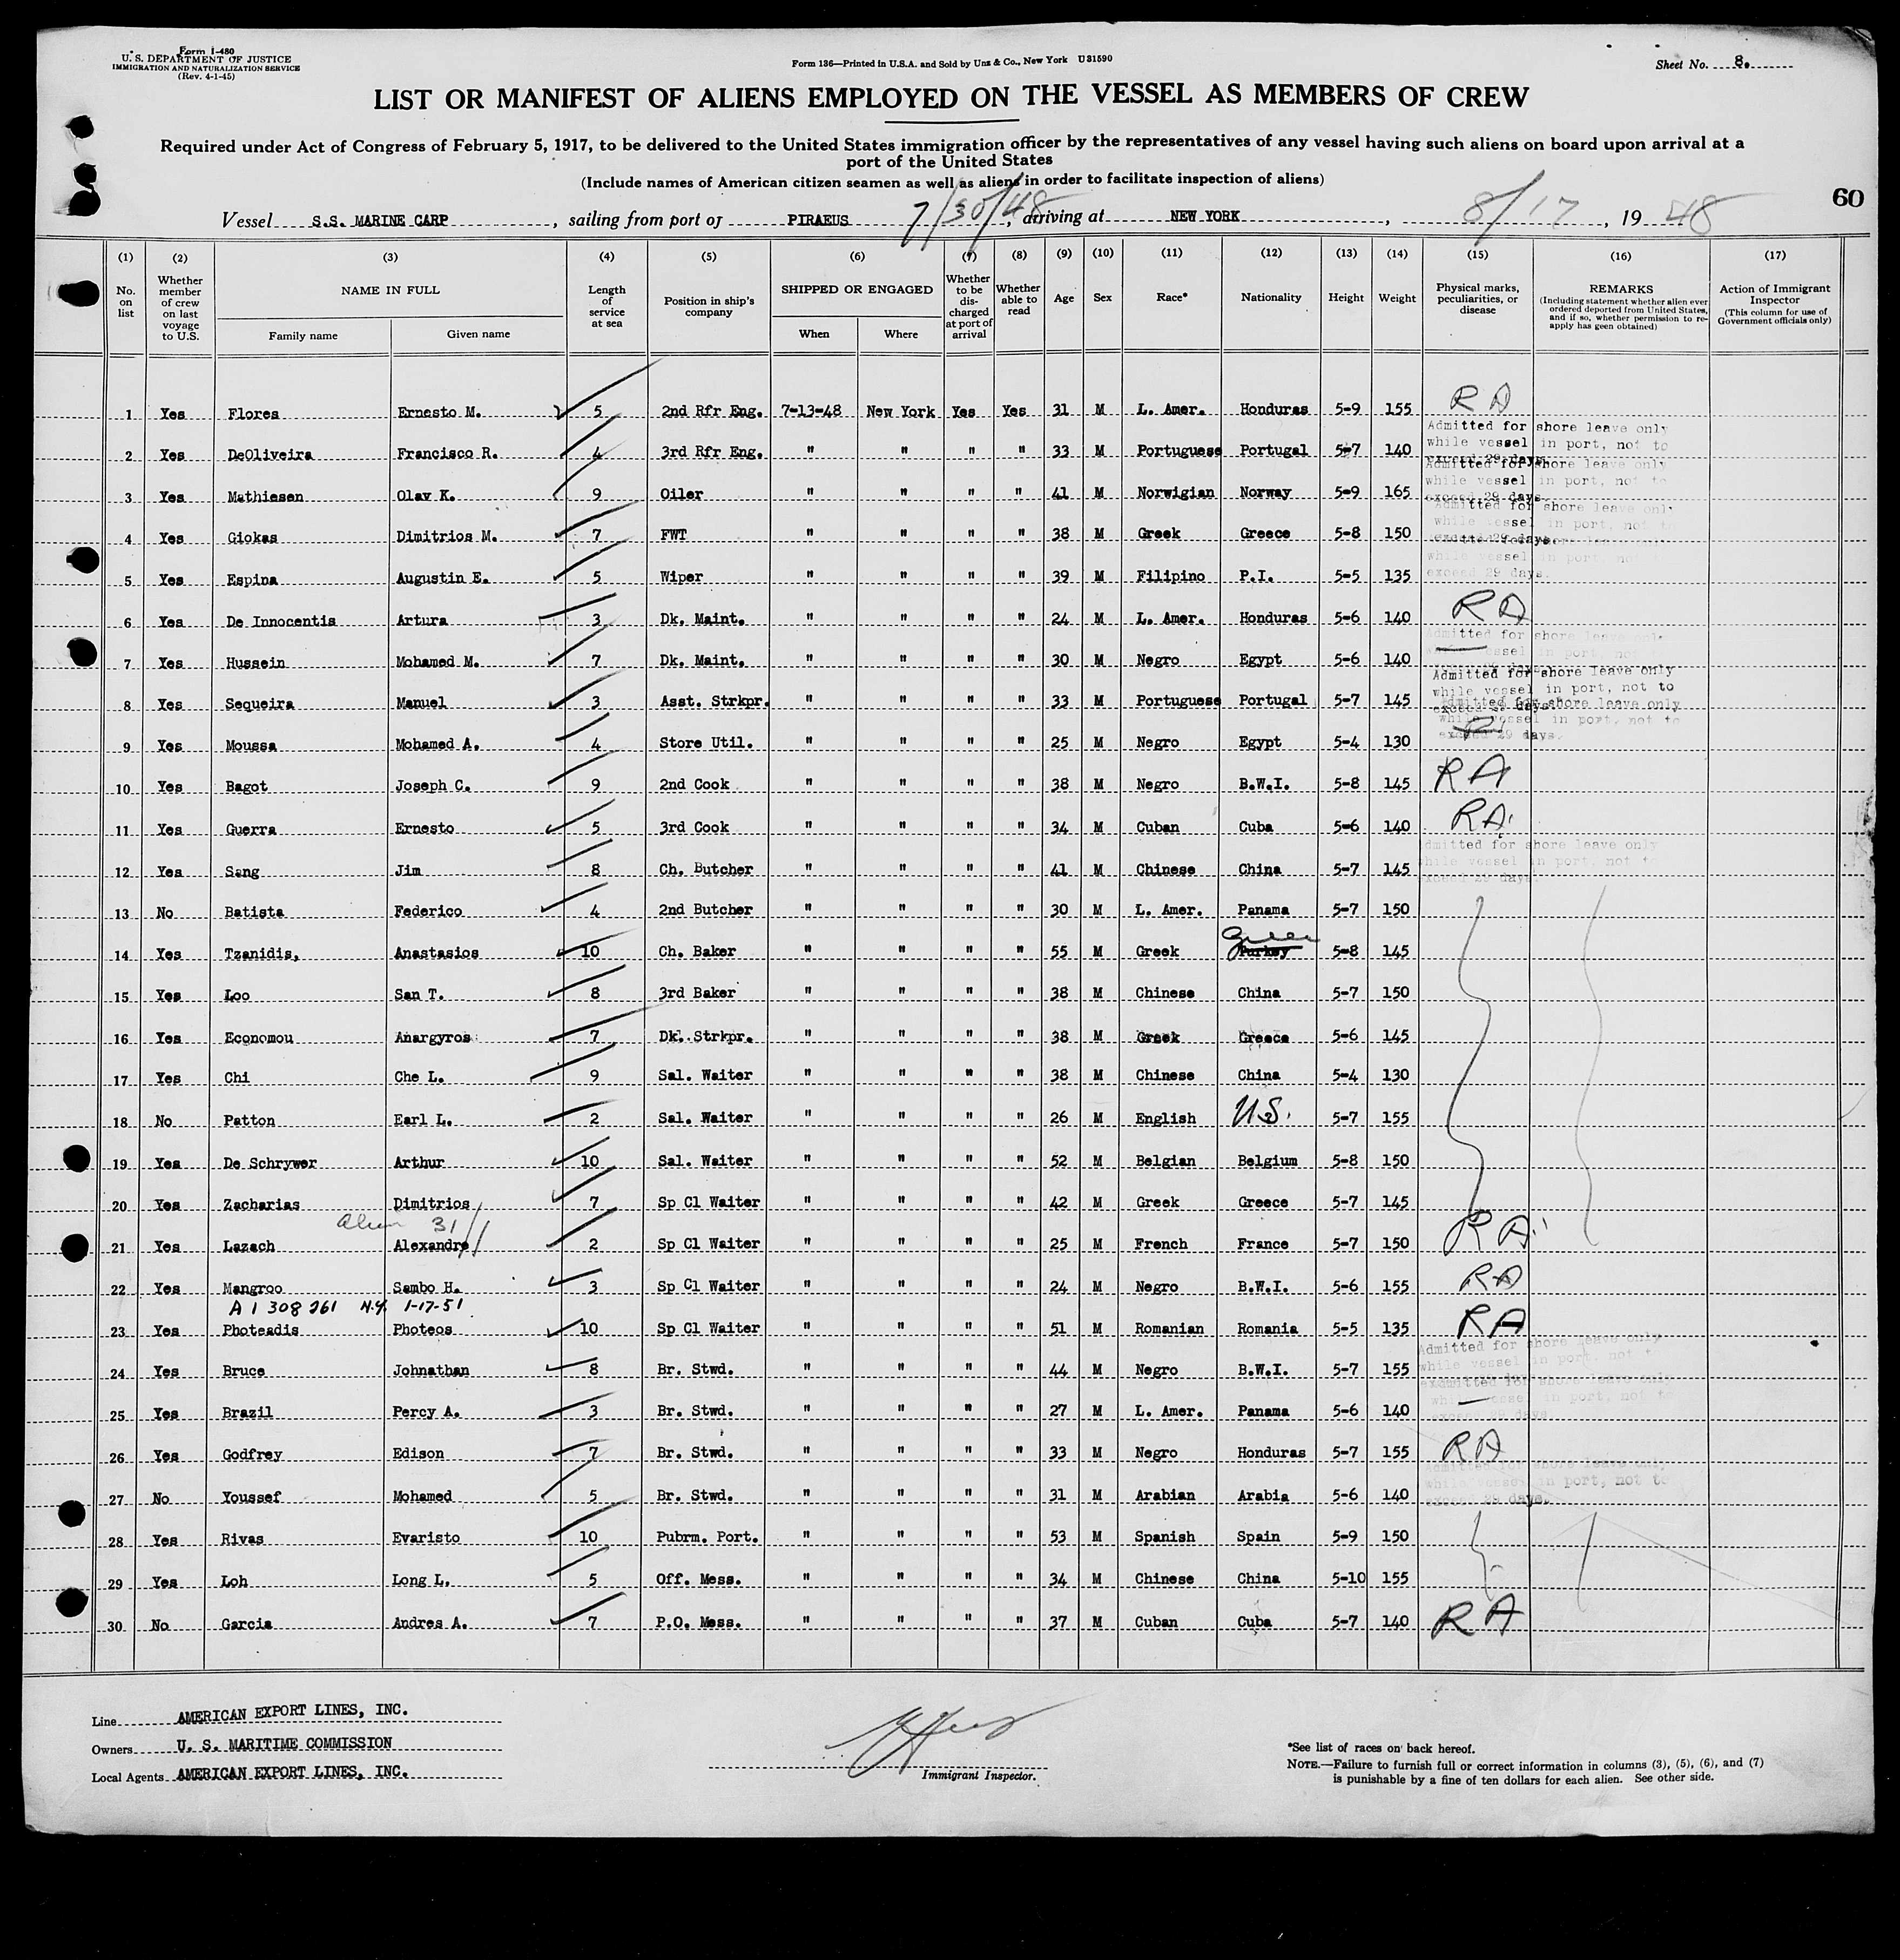 Form I-480
U. S. DEPARTMENT OF JUSTICE
IMMIGRATION AND NATURALIZATION SERVICE
(Rev. 4-1-45)
Form 136—Printed in U.S.A. and Sold by Unz & Co., New York U 31590
Sheet No. 8.
LIST OR MANIFEST OF ALIENS EMPLOYED ON THE VESSEL AS MEMBERS OF CREW
Required under Act of Congress of February 5, 1917, to be delivered to the United States immigration officer by the representatives of any vessel having such aliens on board upon arrival at a
port of the United States
(Include names of American citizen seamen as well as aliens in order to facilitate inspection of aliens)
60
Vessel S.S. MARINE CARP, sailing from port of PIRAEUS 7/30/48, arriving at NEW YORK, 8/17, 1948
(1) No. on list
(2) Whether member of crew on last voyage to U.S.
(3) NAME IN FULL
Family name Given name
(4) Length of service at sea
(5) Position in ship's company
(6) SHIPPED OR ENGAGED
When Where
(7) Whether to be discharged at port of arrival
(8) Whether able to read
(9) Age
(10) Sex
(11) Race*
(12) Nationality
(13) Height
(14) Weight
(15) Physical marks, peculiarities, or disease
(16) REMARKS (Including statement whether alien ever ordered deported from United States, and if so, whether permission to re-apply has geen obtained)
(17) Action of Immigrant Inspector (This column for use of Government officials only)
1 Yes Flores Ernesto M. 5 2nd Rfr Eng. 7-13-48 New York Yes Yes 31 M L. Amer. Honduras 5-9 155 RA
2 Yes DeOliveira Francisco R. 4 3rd Rfr Eng. " " " " 33 M Portuguese Portugal 5-7 140 Admitted for shore leave only while vessel in port, not to exceed 29 days.
3 Yes Mathiesen Olav K. 9 Oiler " " " " 41 M Norwigian Norway 5-9 165 Admitted for shore leave only while vessel in port, not to exceed 29 days.
4 Yes Giokas Dimitrios M. 7 FWT " " " " 38 M Greek Greece 5-8 150 Admitted for shore leave only while vessel in port, not to exceed 29 days.
5 Yes Espina Augustin E. 5 Wiper " " " " 39 M Filipino P.I. 5-5 135 Admitted for shore leave only while vessel in port, not to exceed 29 days.
6 Yes De Innocentis Artura 3 Dk. Maint. " " " " 24 M L. Amer. Honduras 5-6 140 RA
7 Yes Hussein Mohamed M. 7 Dk. Maint. " " " " 30 M Negro Egypt 5-6 140 Admitted for shore leave only vessel in port, not to
8 Yes Sequeira Manuel 3 Asst. Strkpr. " " " " 33 M Portuguese Portugal 5-7 145 Admitted for shore leave only while vessel in port, not to exceed 29 days.
9 Yes Moussa Mohamed A. 4 Store Util. " " " " 25 M Negro Egypt 5-4 130 Admitted for shore leave only while vessel in port, not to exceed 29 days.
10 Yes Bagot Joseph C. 9 2nd Cook " " " " 38 M Negro B.W.I. 5-8 145 RA
11 Yes Guerra Ernesto 5 3rd Cook " " " " 34 M Cuban Cuba 5-6 140 RA
12 Yes Sang Jim 8 Ch. Butcher " " " " 41 M Chinese China 5-7 145 Admitted for shore leave only while vessel in port, not to exceed 29 days.
13 No Batista Federico 4 2nd Butcher " " " " 30 M L. Amer. Panama 5-7 150
14 Yes Tzanidis, Anastasios 10 Ch. Baker " " " " 55 M Greek Turkey 5-8 145
15 Yes Loo San T. 8 3rd Baker " " " " 38 M Chinese China 5-7 150
16 Yes Economou Anargyros 7 Dk. Strkpr. " " " " 38 M Greek Greece 5-6 145
17 Yes Chi Che L. 9 Sal. Waiter " " " " 38 M Chinese China 5-4 130
18 No Patton Earl L. 2 Sal. Waiter " " " " 26 M English U.S. 5-7 155
19 Yes De Schrywer Arthur 10 Sal. Waiter " " " " 52 M Belgian Belgium 5-8 150
20 Yes Zacharias Dimitrios 7 Sp Cl Waiter " " " " 42 M Greek Greece 5-7 145
31
21 Yes Lazach Alexandre 2 Sp Cl Waiter " " " " 25 M French France 5-7 150 RA
22 Yes Mangroo Sambo H. 3 Sp Cl Waiter " " " " 24 M Negro B.W.I. 5-6 155 RA
A 1 308 261 N.Y. 1-17-51
23 Yes Photeadis Photeos 10 Sp Cl Waiter " " " " 51 M Romanian Romania 5-5 135 RA
24 Yes Bruce Johnathan 8 Br. Stwd. " " " " 44 M Negro B.W.I. 5-7 155 Admitted for shore leave only while vessel in port, not to
25 Yes Brazil Percy A. 3 Br. Stwd. " " " " 27 M L. Amer. Panama 5-6 140 Admitted for shore leave only vessel in port, not to exceed 29 days
26 Yes Godfrey Edison 7 Br. Stwd. " " " " 33 M Negro Honduras 5-7 155 RA
27 No Youssef Mohamed 5 Br. Stwd. " " " " 31 M Arabian Arabia 5-6 140 Admitted for shore leave only while vessel in port, not to exceed 29 days.
28 Yes Rivas Evaristo 10 Pubrm. Port. " " " " 53 M Spanish Spain 5-9 150
29 Yes Loh Long L. 5 Off. Mess. " " " " 34 M Chinese China 5-10 155
30 No Garcia Andres A. 7 P.O. Mess. " " " " 37 M Cuban Cuba 5-7 140 RA
Line AMERICAN EXPORT LINES, INC.
Owners U. S. MARITIME COMMISSION
Local Agents AMERICAN EXPORT LINES, INC.
Immigrant Inspector.
*See list of races on back hereof.
NOTE.—Failure to furnish full or correct information in columns (3), (5), (6), and (7)
is punishable by a fine of ten dollars for each alien. See other side.